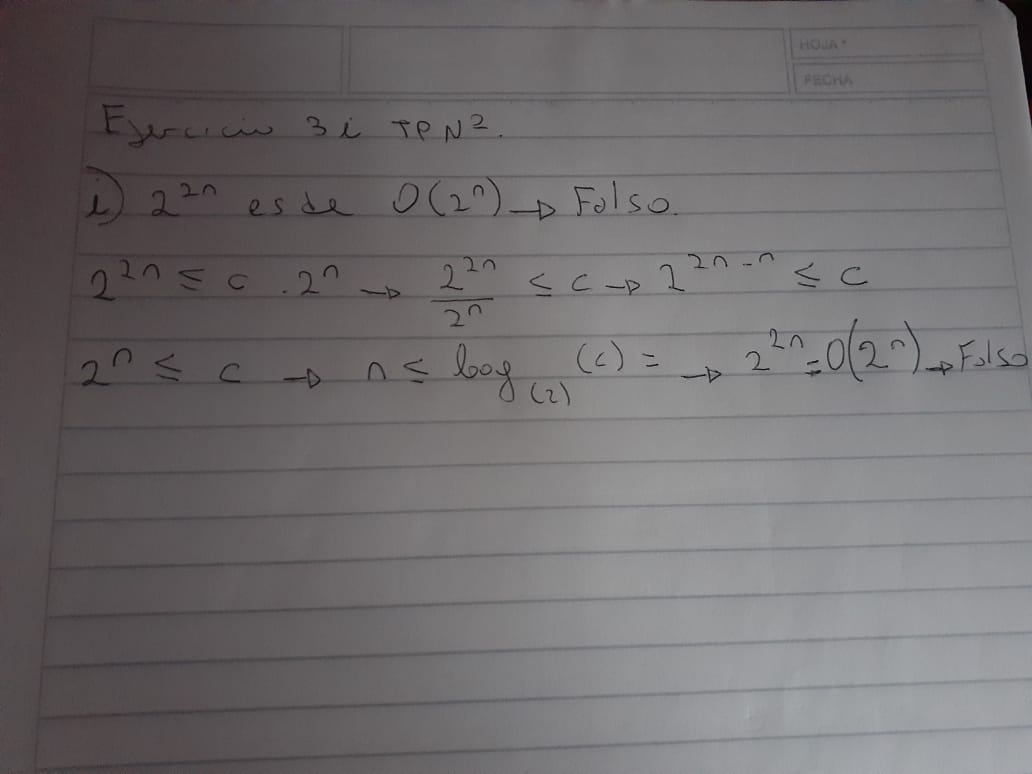 HOJA º
FECHA
Ejercicio 3 i TP N2.
i) 2^2n es de O(2^n) → Falso.
2^2n ≤ c . 2^n → 2^2n / 2^n ≤ c → 2^2n-n ≤ c
2^n ≤ c → n ≤ log (2) (c) = → 2^2n = O(2^n) → Falso